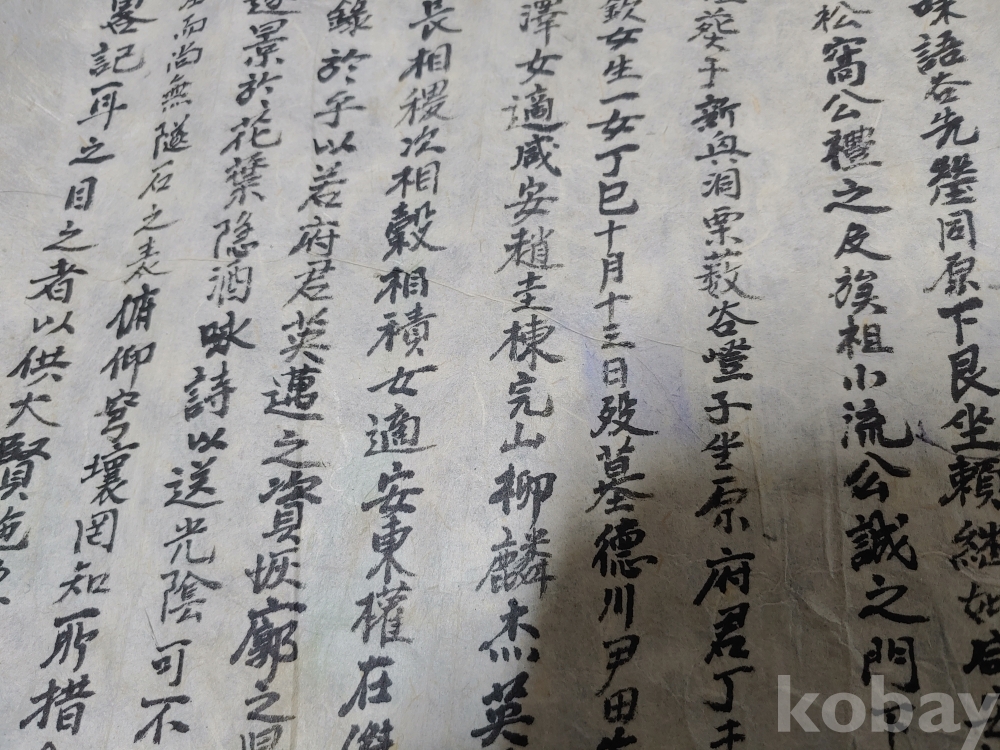 語谷先塋同原下艮坐賴継如
松窩公禮之及族祖小流公誠之門
癸子新興洞栗薮谷嶝子坐原府君丁
欽女生一女丁巳十月十三日歿墓德川尹田
澤女適咸安趙圭棟完山柳麟杰英
長相稷次相穀相積女適安東權在
錄於乎以若府君英邁之資恢廓之
景於花葉隐酒咏詩以送光陰可不
而尚無隧石之表俯仰穹壤罔知所措
畧記耳之目之者以供大賢
kobay